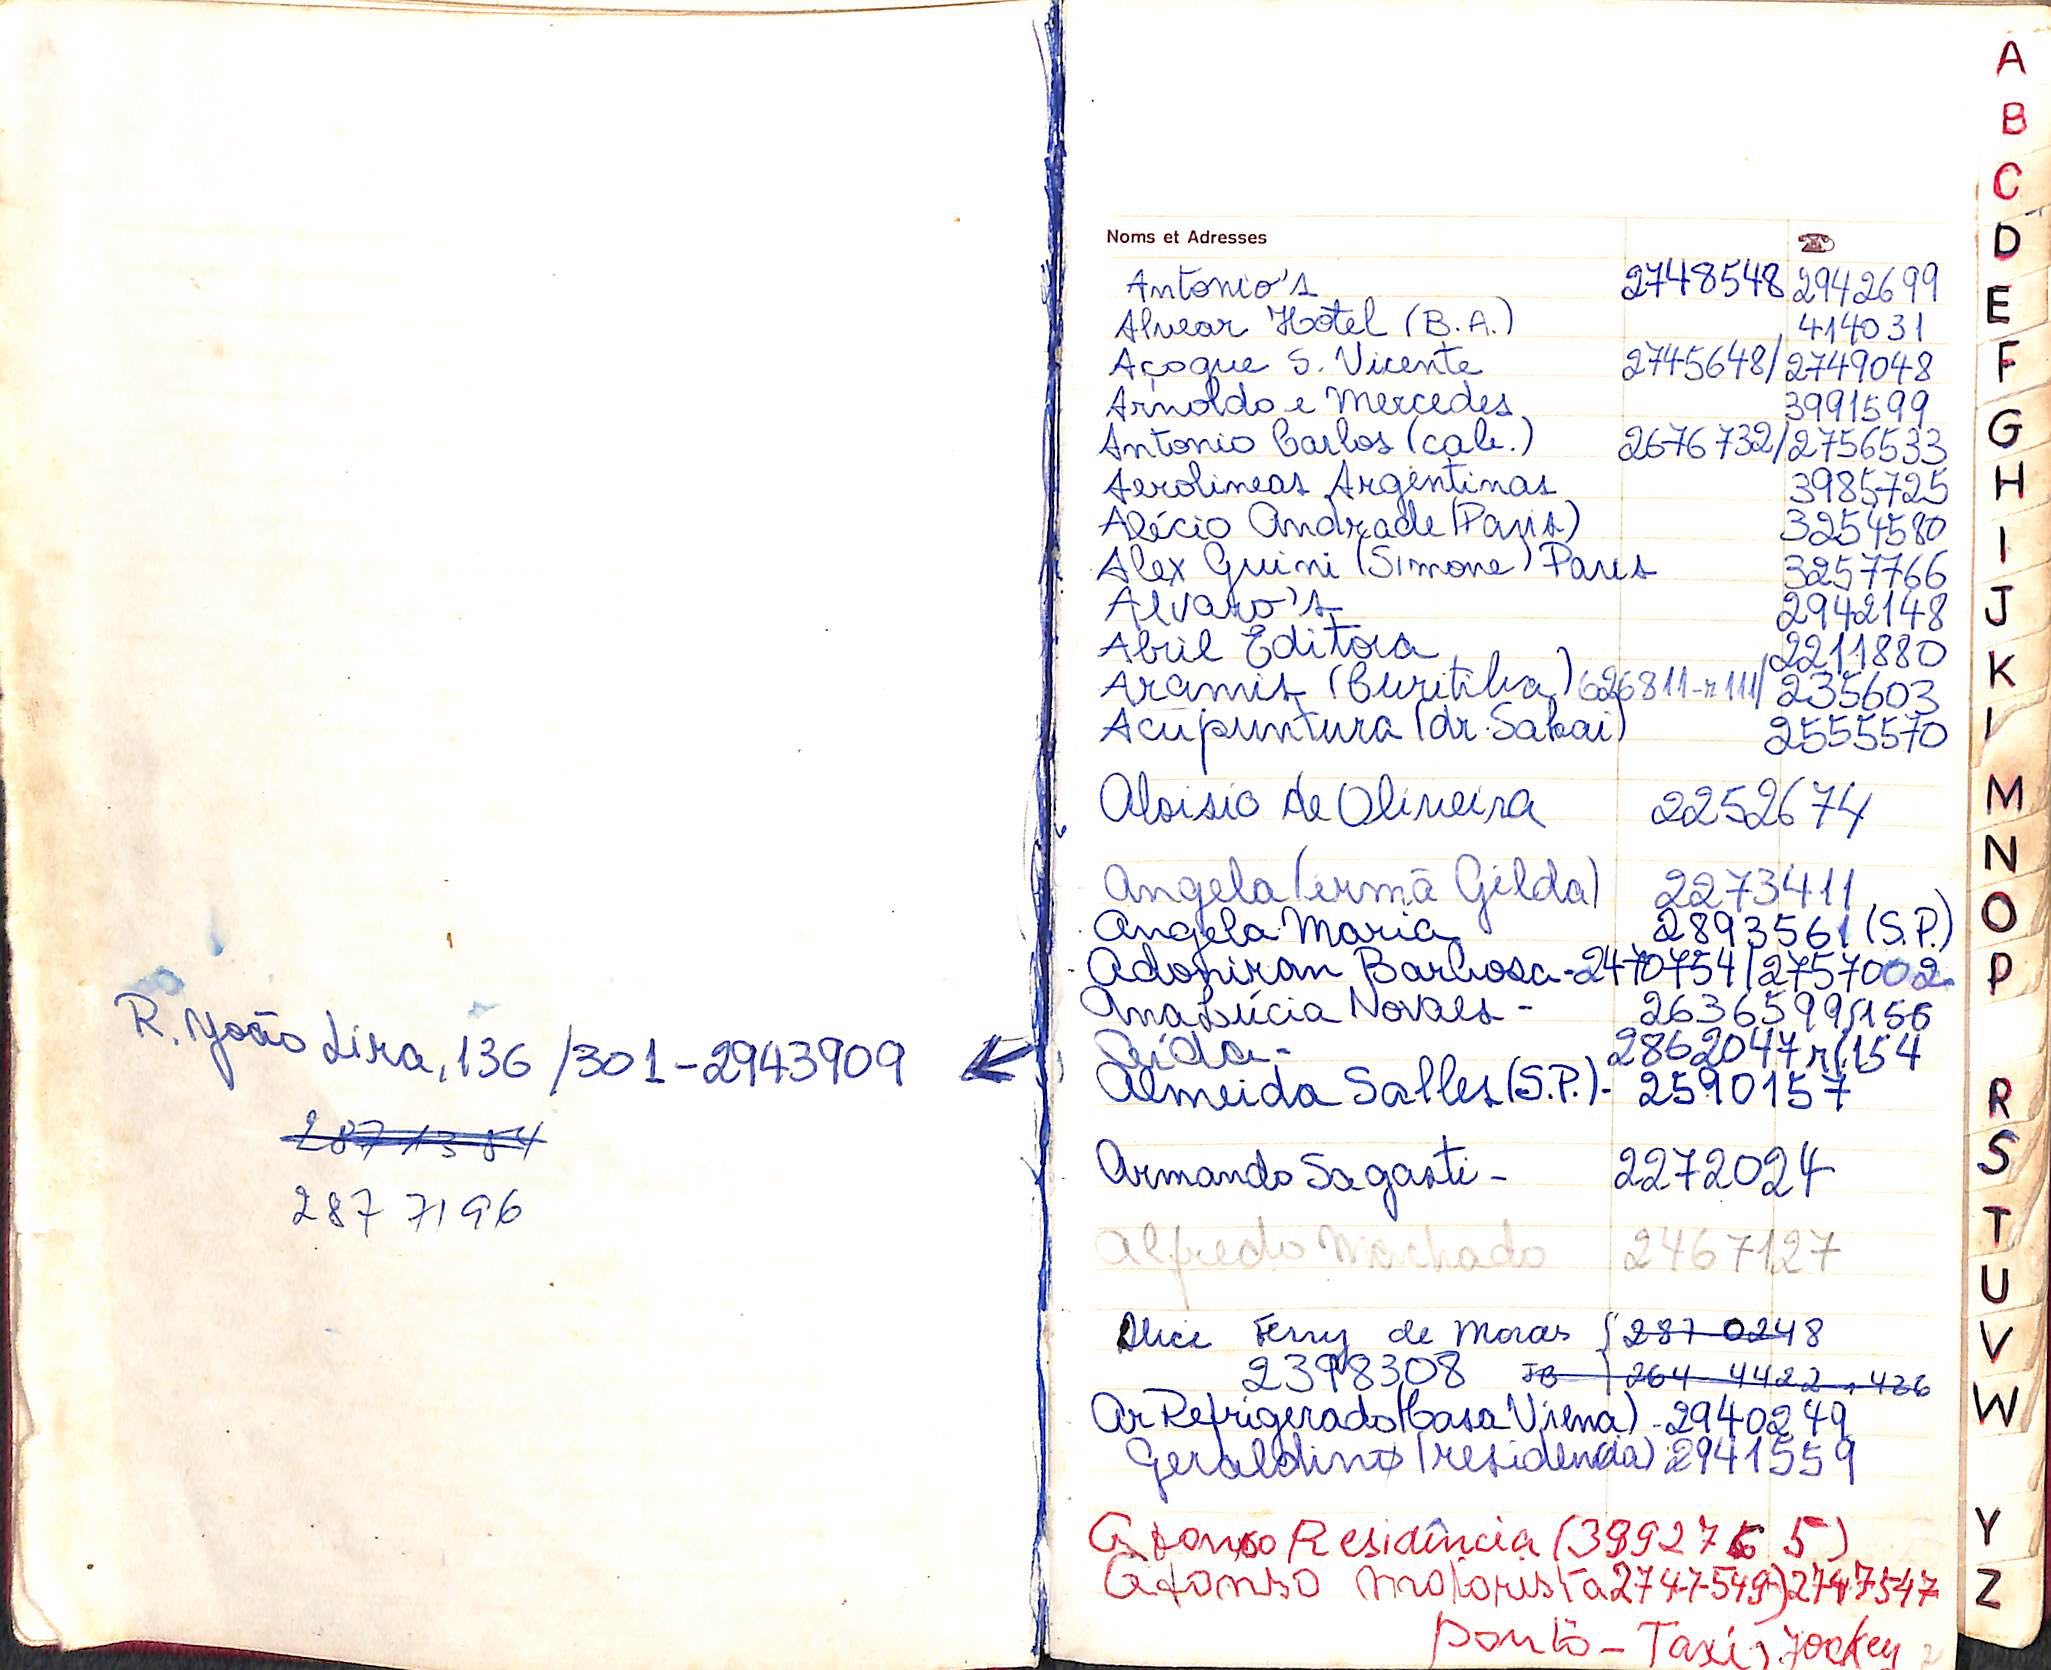 R. João Lira, 136 /301-2943909
287 1384
287 7196
Noms et Adresses
Antonio's 2748548 2942699
Alvear Hotel (B.A.) 414031
Açogue S. Vicente 2745648/2749048
Arnoldo e Mercedes 3991599
Antonio Carlos (cab.) 2676732/2756533
Aerolineas Argentinas 3985725
Alécio Andrade (Paris) 3254580
Alex Guini (Simone) Paris 3257766
Alvaro's 2942148
Abril Editora 2211880
Aramis (Curitiba) 626811-r111/235603
Acupuntura (dr. Sakai) 2555570
Aloisio de Oliveira 2252674
Angela (irmã Gilda) 2273411
Angela Maria 2893561 (S.P.)
Adoniran Barbosa-2470754/2757002
Ana Lúcia Novaes - 2636599/156
2862047 r/154
Almeida Salles (S.P.)- 2590157
Armando Sagasti - 2272024
Alfredo Machado 2467127
Alice Ferry de Moras {287 0248
2398308 JB 264-4422, 436
Ar Refrigerado (Casa Viena) - 2940249
Geraldino (residencia) 2941559
Afonso Residência (3992765)
Afonso motorista 2747549) 2747547
ponto - Taxi, Jockey
A
B
C
D
E
F
G
H
I
J
K
L
M
N
O
P
R
S
T
U
V
W
Y
Z